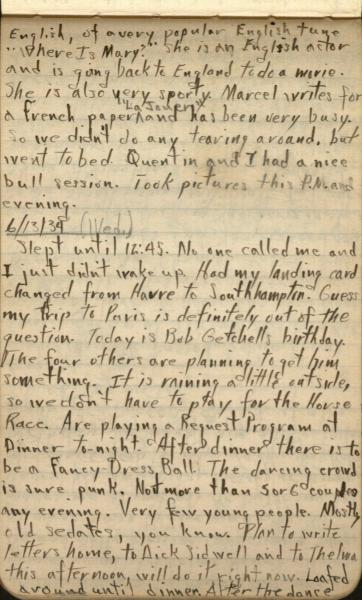 English, of a very popular English tune
"Where Is Mary?" She is an English actor
and is going back to England to do a movie.
She is also very sporty. Marcel writes for
"La Journal"
a French paper and has been very busy.
So we didn't do any tearing around, but
went to bed. Quentin and I had a nice
bull session. Took pictures this P.M. and
evening.
6/13/34 (Wed.)
Slept until 12:45. No one called me and
I just didn't wake up. Had my landing card
changed from Havre to Southhampton. Guess
my trip to Paris is definitely out of the
question. Today is Bob Getchell's birthday.
The four others are planning to get him
something. It is raining a little outside,
so we don't have to play for the Horse
Race. Are playing a Request Program at
Dinner to-night. After dinner there is to
be a Fancy Dress Ball. The dancing crowd
is sure punk. Not more than 5 or 6 couples
any evening. Very few young people. Mostly
old sedates, you know. Plan to write
letters home, to Dick Sidwell and to Thelma
this afternoon, will do it right now. Loafed
around until dinner. After the dance